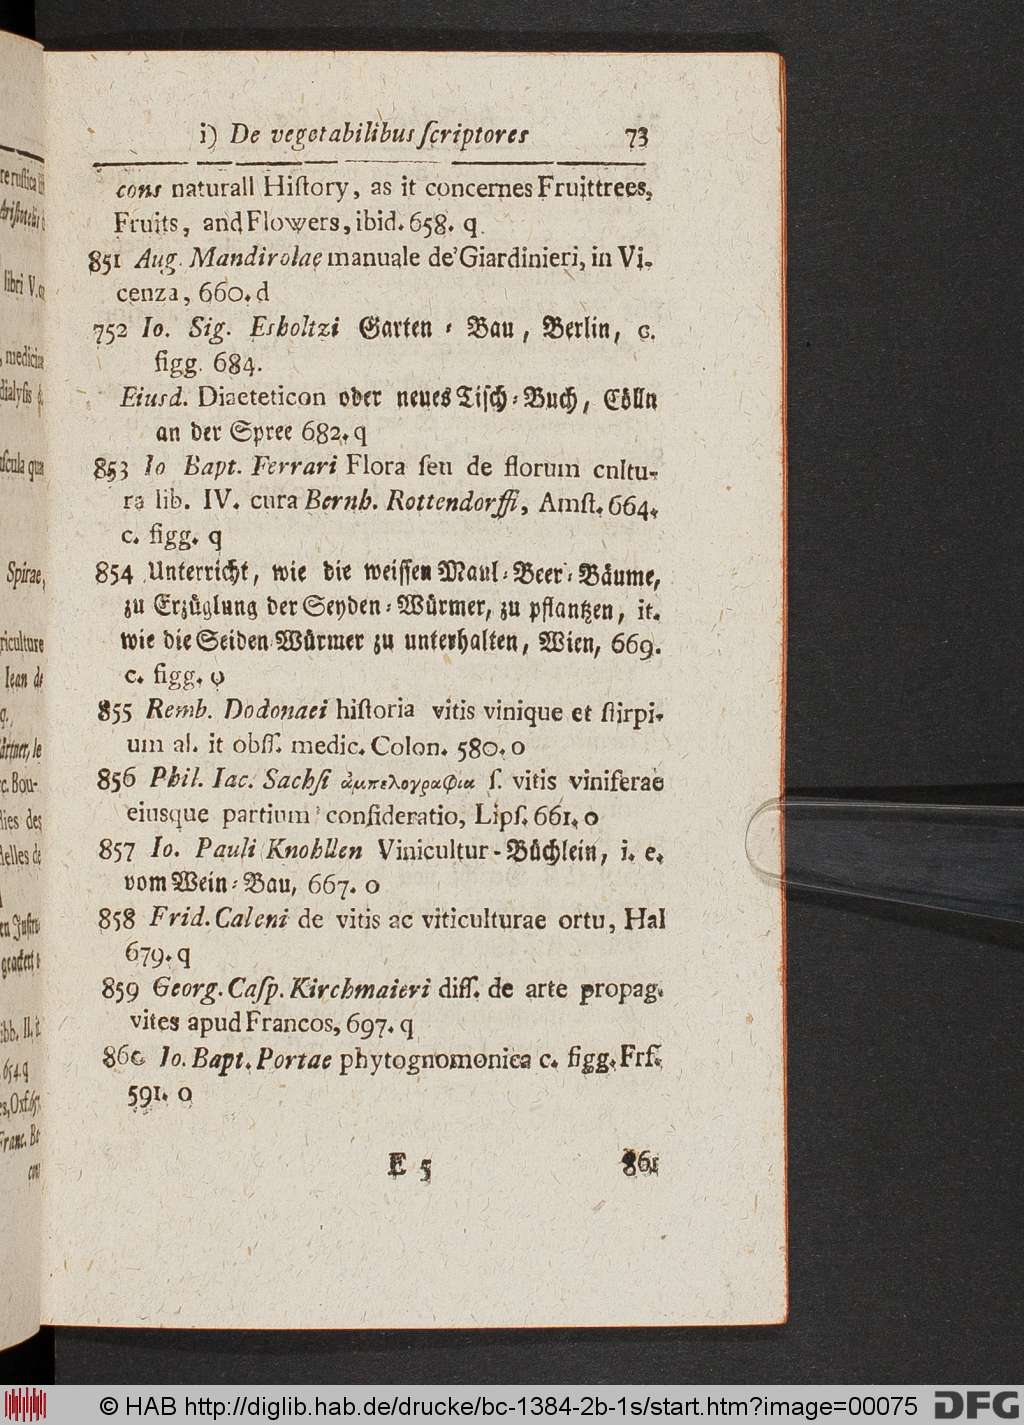 i) De vegetabilibus ſcriptores 73
cons naturall Hiſtory, as it concernes Fruittrees,
Fruits, and Flowers, ibid. 658. q
851 Aug. Mandirolae manuale de' Giardinieri, in Vi-
cenza, 660. d
752 Io. Sig. Esholtzi Garten-Bau, Berlin, c.
figg. 684.
Eiusd. Diaeteticon oder neues Tiſch-Buch, Cölln
an der Spree 682. q
853 Io Bapt. Ferrari Flora ſeu de florum cnltu-
ra lib. IV. cura Bernh. Rottendorffi, Amſt. 664.
c. figg. q
854 Unterricht, wie die weiſſen Maul-Beer-Bäume,
zu Erzüglung der Seyden-Würmer, zu pflantzen, it.
wie die Seiden Würmer zu unterhalten, Wien, 669.
c. figg. o
855 Remb. Dodonaei hiſtoria vitis vinique et ſtirpi-
um al. it obſſ. medic. Colon. 580. o
856 Phil. Iac. Sachſi ἀμπελογραφια ſ. vitis viniferae
eiusque partium conſideratio, Lipſ. 661. o
857 Io. Pauli Knohllen Vinicultur-Büchlein, i. e.
vom Wein-Bau, 667. o
858 Frid. Caleni de vitis ac viticulturae ortu, Hal
679. q
859 Georg. Caſp. Kirchmaieri diſſ. de arte propag.
vites apud Francos, 697. q
860 Io. Bapt. Portae phytognomonica c. figg. Frf.
591. o
E 5 861
re ruſtica
Ariſtotelis
libri V.
medicinae
dialyſis
Spirae,
riculture
Iean de
q.
c. Bou-
lies des
654. q
Franc. Ba-
cons
© HAB http://diglib.hab.de/drucke/bc-1384-2b-1s/start.htm?image=00075 DFG